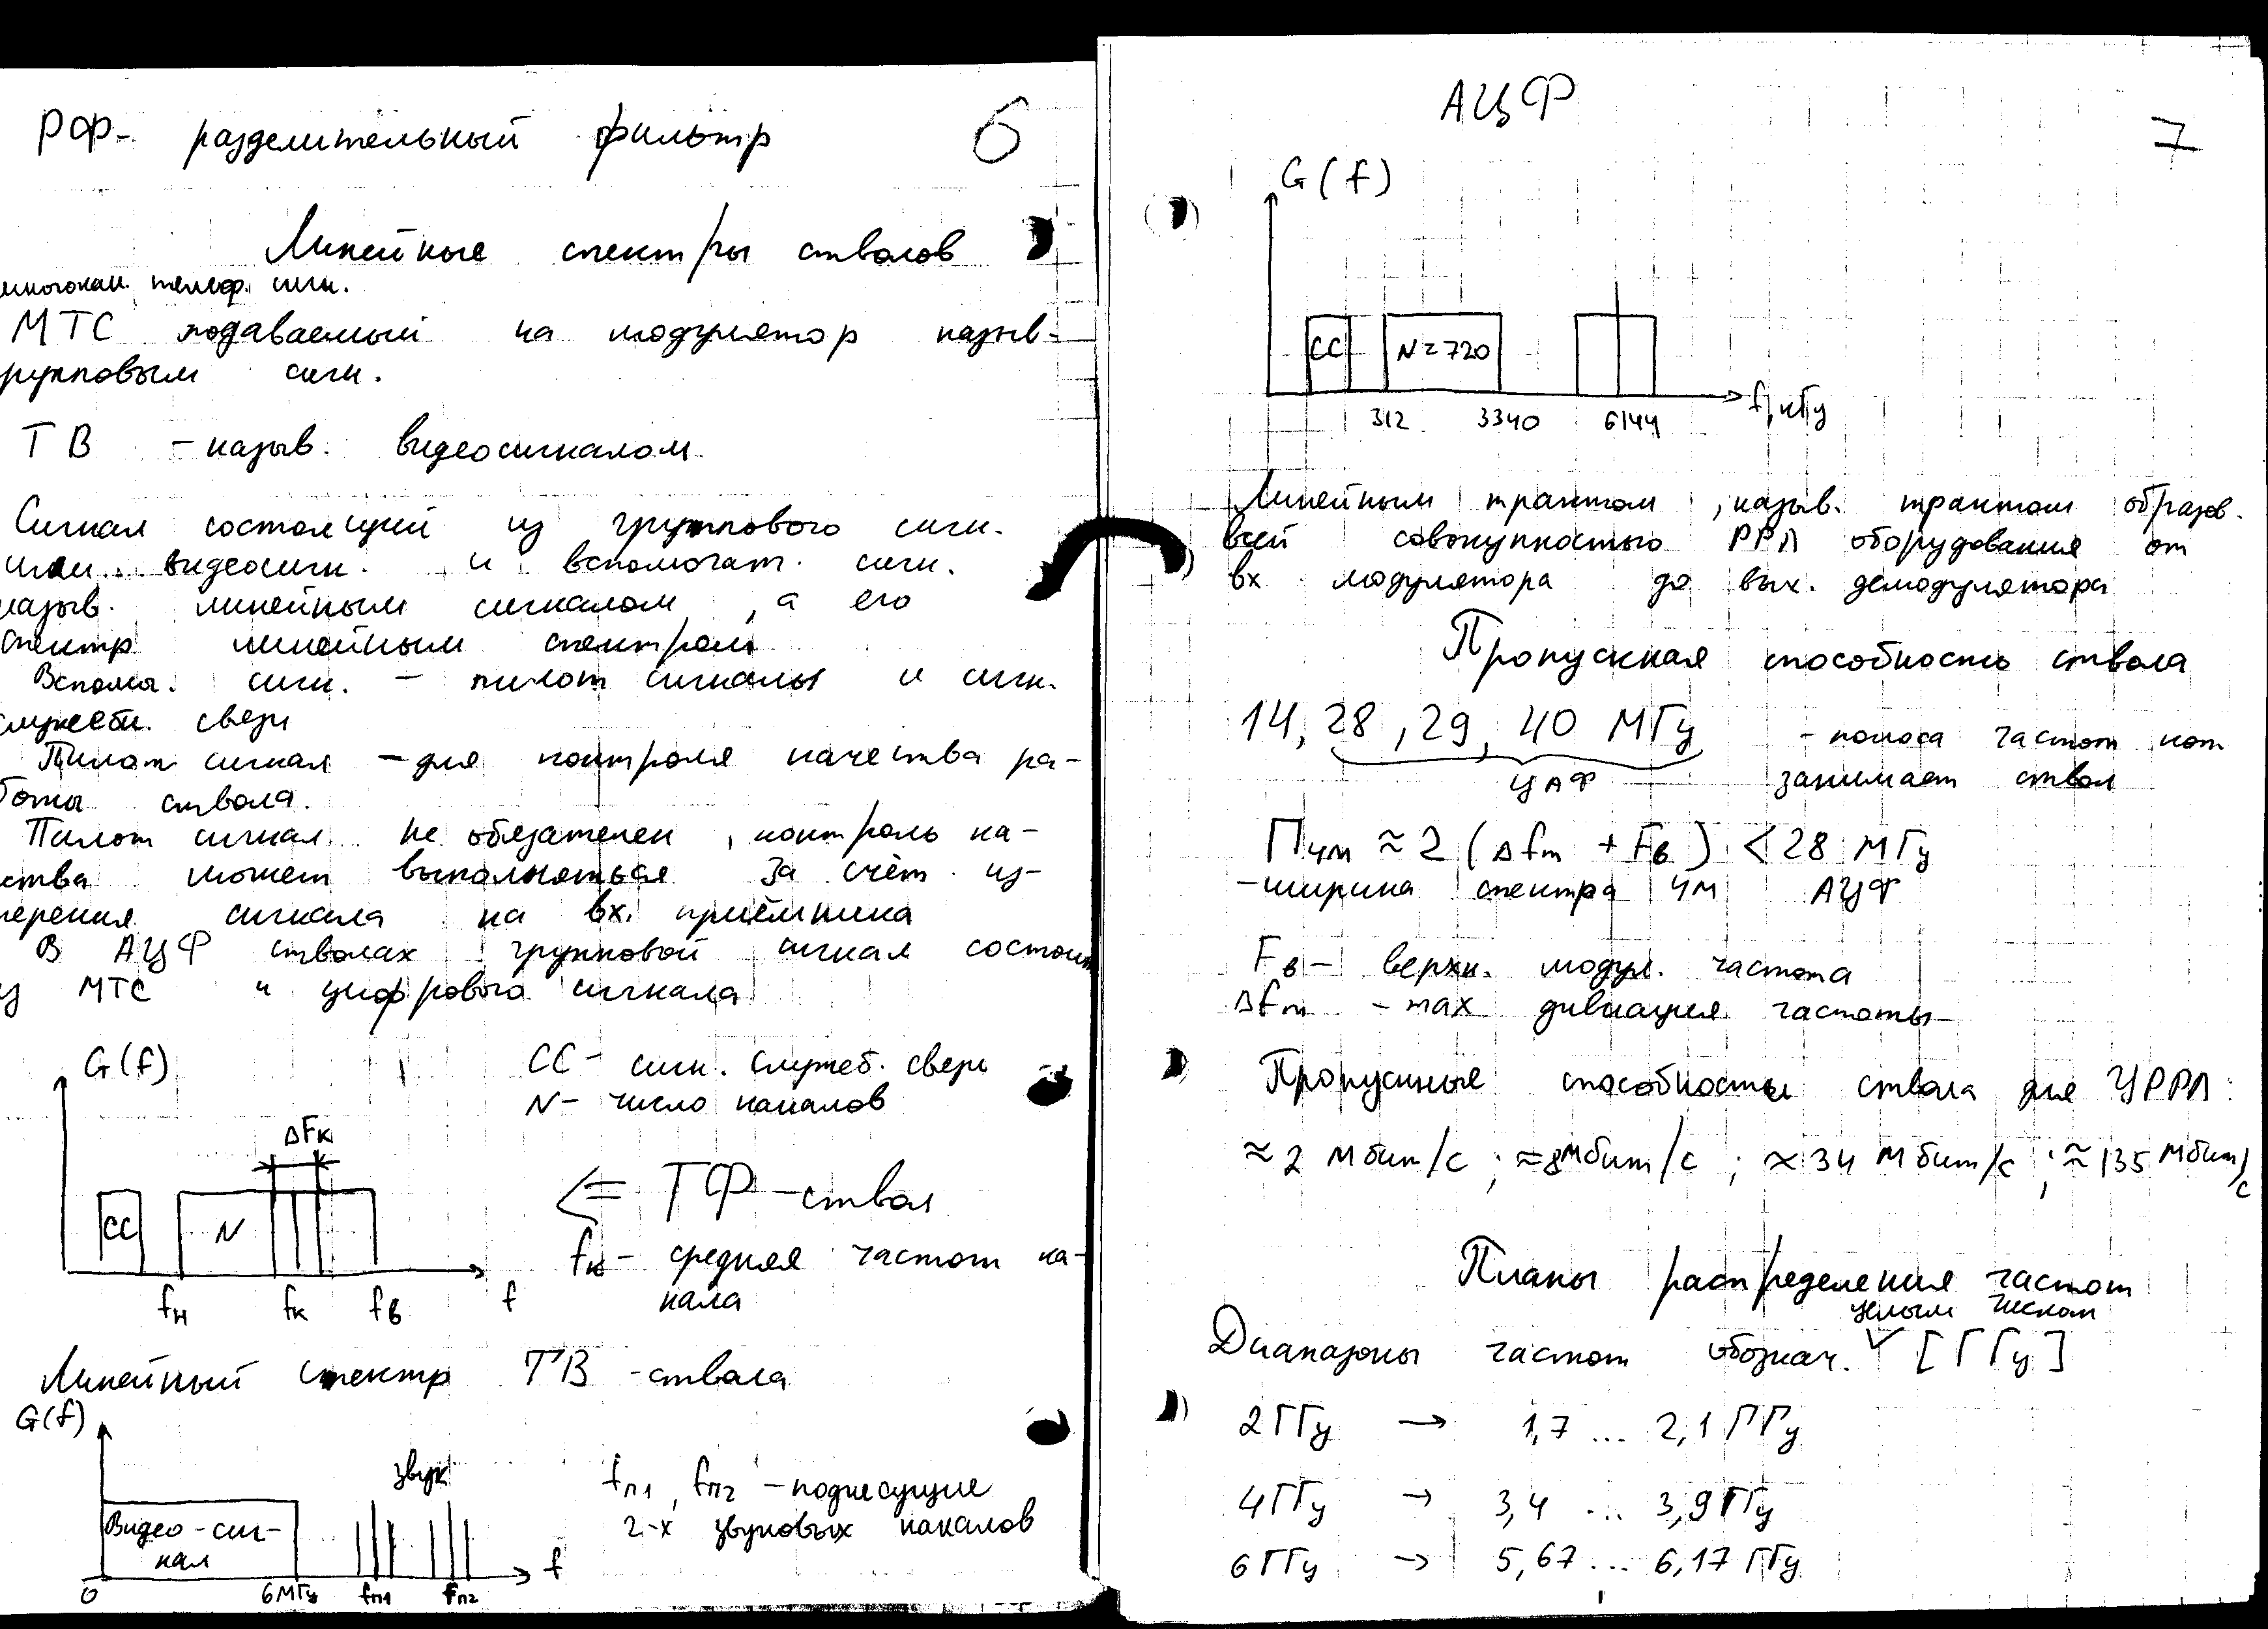 РФ- разделительный фильтр 6
Линейные спектры стволов
многокан. телеф. сигн.
МТС подаваемый на модулятор назыв-
рупповым сигн.
ТВ - назыв. видеосигналом.
Сигнал состоящий из группового сигн.
или видеосигн. и вспомогат. сигн.
назыв. линейным сигналом, а его
спектр линейным спектром
Вспом. сигн. - пилот сигналы и сигн.
служебн. связи
Пилот сигнал - для контроля качества ра-
боты ствола.
Пилот сигнал не обязателен, контроль ка-
ства может выполняться за счёт из-
мерения сигнала на вх. приёмника
В АЦФ стволах групповой сигнал состоит
из МТС и цифрового сигнала
G(f)
СС - сигн. служеб. связи
N - число каналов
ΔFк
СС N
fн fк fв f
<= ТФ - ствол
fк - средняя частот ка-
нала
Линейный спектр ТВ - ствола
G(f)
звук
Видео-сиг-
нал
0 6МГц fп1 fп2 f
fп1, fп2 - поднесущие
2-х звуковых каналов
АЦФ
7
G(f)
СС N=720
312 3340 6144 f,кГц
Линейным трактом, назыв. трактом образов.
всей совокупностью РРЛ оборудования от
вх модулятора до вых. демодулятора
Пропускная способность ствола
14, 28, 29, 40 МГц - полоса частот кот
ЦАФ занимает ствол
Пчм ≈ 2 (Δfm + Fв) < 28 МГц
- ширина спектра ЧМ АЦФ
Fв - верхн. модул. частота
Δfm - max дивиация частоты
Пропускные способности ствола для ЦРРЛ:
≈2 Мбит/с; ≈8Мбит/с; ≈34 Мбит/с; ≈135 Мбит/с
Планы распределения частот
целым числом
Диапазоны частот обознач. ✓ [ГГц]
2ГГц → 1,7 ... 2,1 ГГц
4ГГц → 3,4 ... 3,9 ГГц
6 ГГц → 5,67 ... 6,17 ГГц